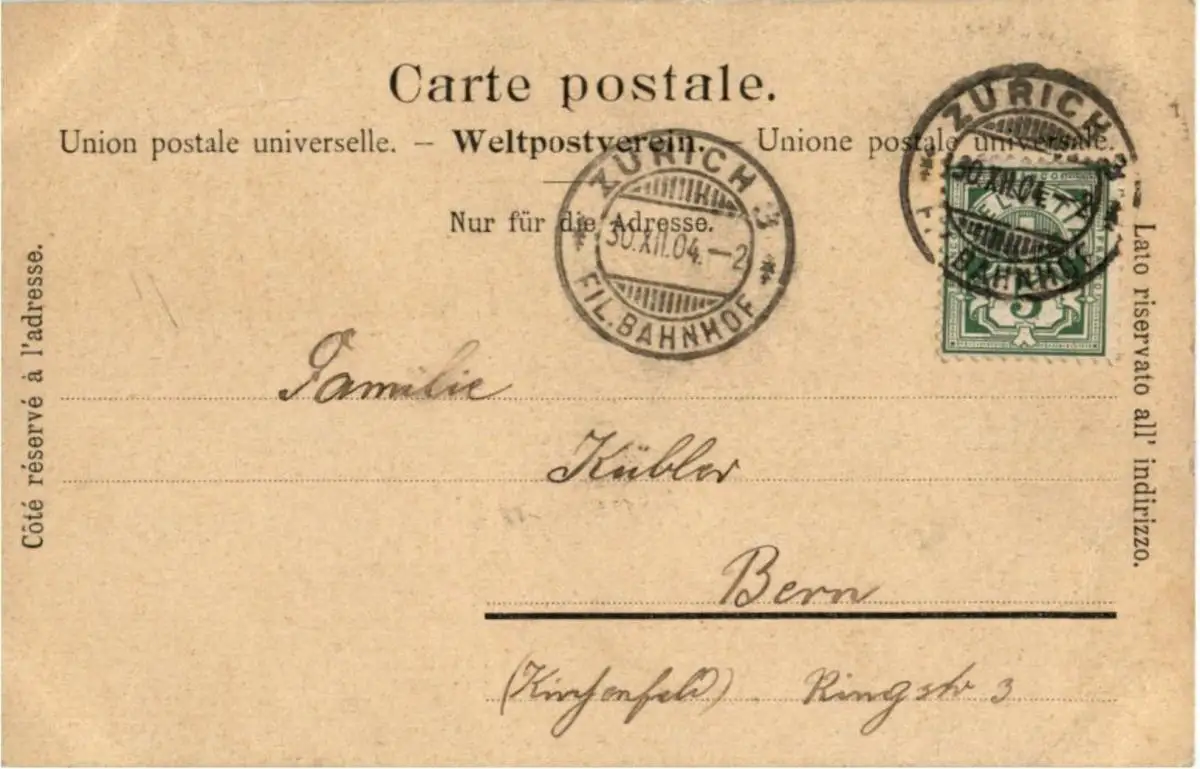 Carte postale.
Union postale universelle. – Weltpostverein. – Unione postale universale.
Nur für die Adresse.
ZÜRICH 3
30.XII.04.–2
FIL. BAHNHOF
ZÜRICH 3
30.XII.04.
BAHNHOF
5
Côté réservé à l'adresse.
Lato riservato all' indirizzo.
Familie
Kübler
Bern
(Kirchenfeld). Ringstr 3